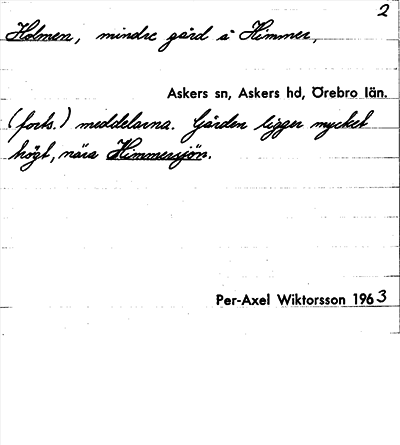 2
Holmen, mindre gård å Himmer,
Askers sn, Askers hd, Örebro län.
(forts.) meddelarna. Gården ligger mycket
högt, nära Himmersjön.
Per-Axel Wiktorsson 1963